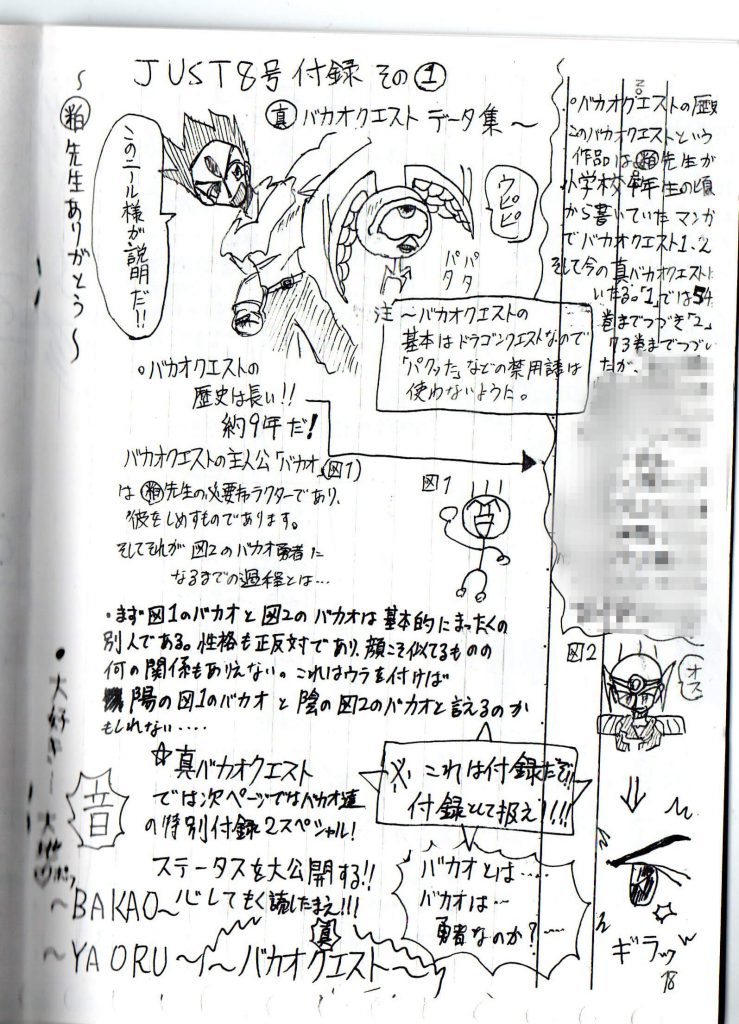 JUST8号付録 その①
真 バカオクエスト データ集〜
〜粕先生ありがとう〜
このニール様が説明だ!!
ウピピ
パタ
パタ
注 〜バカオクエストの
基本はドラゴンクエストなので
「パクッた」などの禁用語は
使わないように。
・バカオクエストの
歴史は長い!!
約9年だ!
バカオクエストの主人公「バカオ」(図1)
は粕先生の必要キャラクターであり、
彼をしめすものであります。
そしてそれが図2のバカオ勇者に
なるまでの過程とは…
図1
No.
・バカオクエストの歴史
このバカオクエストという
作品は粕先生が
小学校 年生の頃
から書いていたマンガ
でバカオクエスト1、2
そして今の真バカオクエストに
いたる。「1」では54
巻までつづき「2」
73巻までつづい
たが、
・まず図1のバカオと図2のバカオは基本的にまったくの
別人である。性格も正反対であり、顔こそ似てるものの
何の関係もありえない。これはウラを付けば
陽の図1のバカオと陰の図2のバカオと言えるのか
もしれない....
図2
オス
☆真バカオクエスト
では次ページではバカオ達
の特別付録2スペシャル!
ステータスを大公開する!!
心してもく読したまえ!!!
※これは付録だぞ!!
付録として扱え!!!!
バカオとは....
バカオは…
勇者なのか?…
ギラッ
18
音
・大好きー
〜BAKAO〜
〜YAORU〜
真
〜バカオクエスト〜